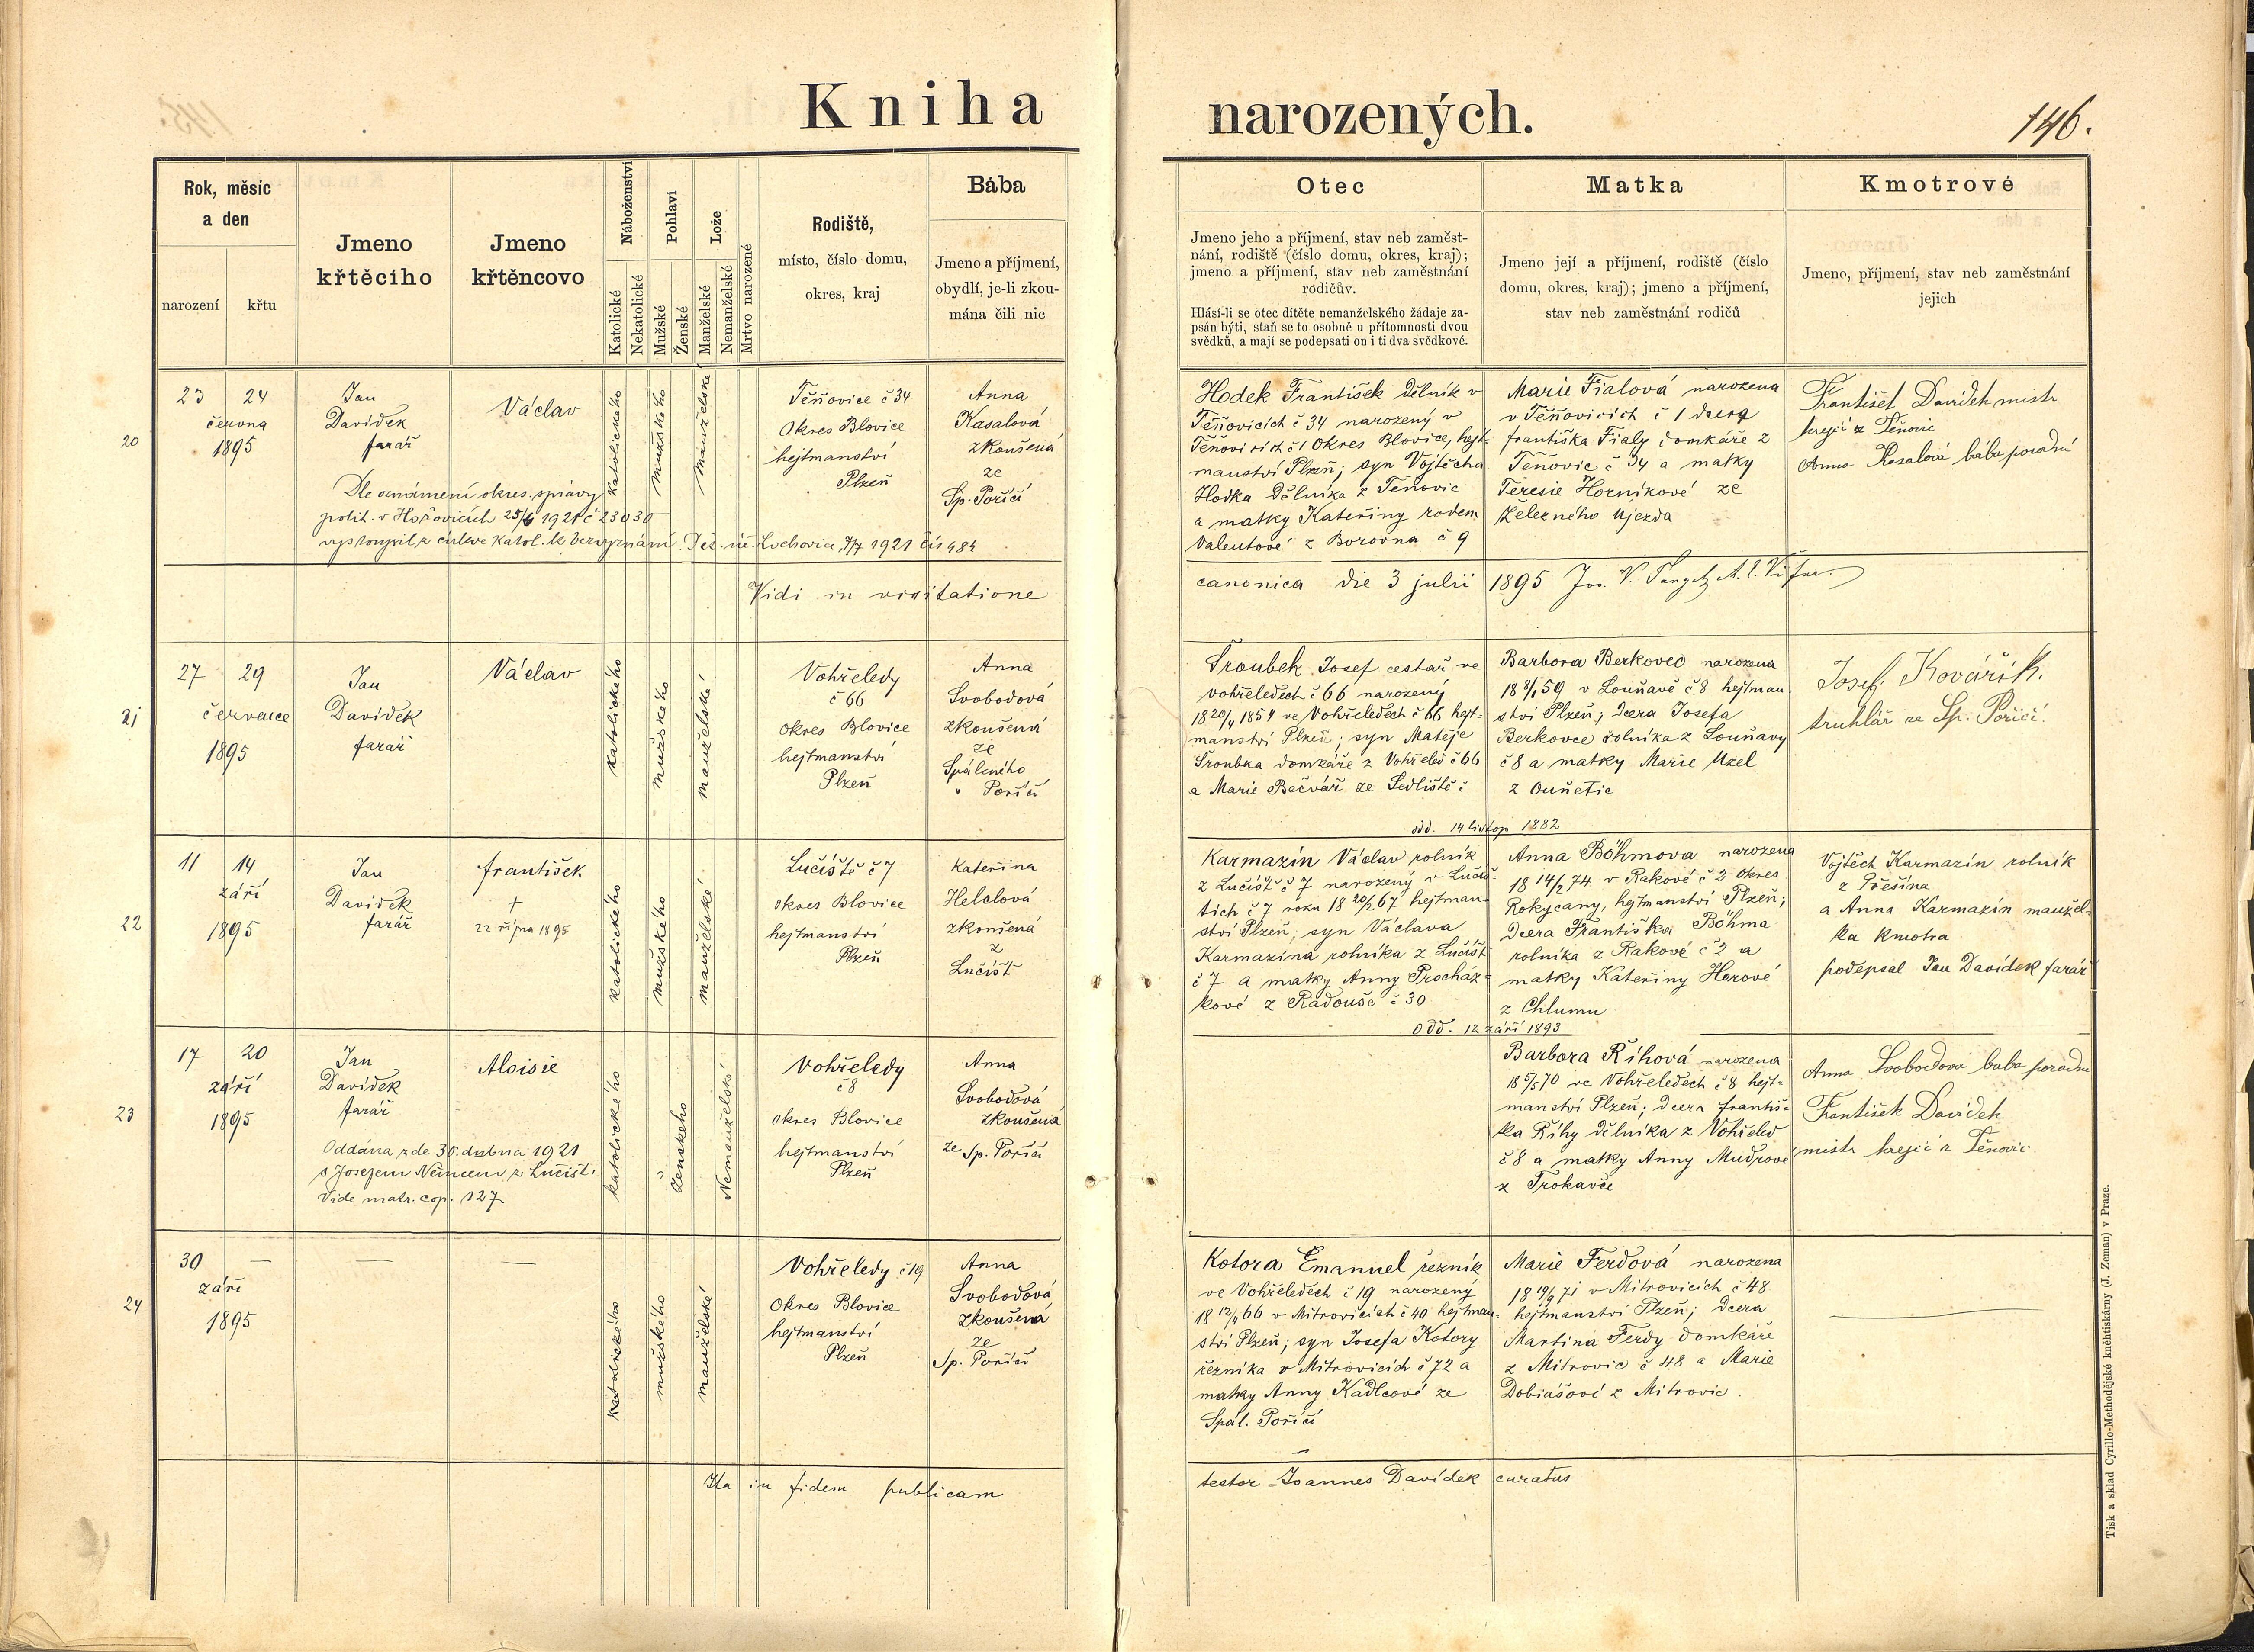 Kniha narozených.
146.
Rok, měsíc
a den
narození
křtu
Jmeno
křtěcího
Jmeno
křtěncovo
Náboženství
Katolické
Nekatolické
Pohlaví
Mužské
Ženské
Lože
Manželské
Nemanželské
Mrtvo narozené
Rodiště,
místo, číslo domu,
okres, kraj
Bába
Jmeno a příjmení,
obydlí, je-li zkou-
mána čili nic
Otec
Jmeno jeho a příjmení, stav neb zaměst-
nání, rodiště (číslo domu, okres, kraj);
jmeno a příjmení, stav neb zaměstnání
rodičův.
Hlásí-li se otec dítěte nemanželského žádaje za-
psán býti, staň se to osobně u přítomnosti dvou
svědků, a mají se podepsati on i ti dva svědkové.
Matka
Jmeno její a příjmení, rodiště (číslo
domu, okres, kraj); jmeno a příjmení,
stav neb zaměstnání rodičů
Kmotrové
Jmeno, příjmení, stav neb zaměstnání
jejich
20
23 24
června
1895
Jan
Davídek
farář
Václav
katolického
mužského
manželské
Těňovice č 34
Okres Blovice
hejtmanství
Plzeň
Anna
Kasalová
zkoušená
ze
Sp. Poříčí
Dle oznámení okres. správy
polit. v Hořovicích 25/6 1921 č 23030
vystoupil z církve katol. k bezvyznání. Též úř. Lochovice 7/7 1921 čís 484
Hodek František dělník v
Těňovicích č 34 narozený v
Těňovicích č 1 Okres Blovice, hejt=
manství Plzeň; syn Vojtěcha
Hodka dělníka z Těňovic
a matky Kateřiny rodem
Valentové z Borovna č 9
Marie Fialová narozena
v Těňovicích č 1 dcera
františka Fialy domkáře z
Těňovic č 34 a matky
Teresie Horníkové ze
Železného Ujezda
František Davídek mistr
krejčí z Těňovic
Anna Kasalová bába porodní
Vidi in visitatione canonica die 3 julii 1895 Jos. V.
21
27 29
července
1895
Jan
Davídek
farář
Václav
katolického
mužského
manželské
Vohřeledy
č 66
Okres Blovice
hejtmanství
Plzeň
Anna
Svobodová
zkoušená
ze
Spáleného
" Poříčí
Šroubek Josef cestář ve
vohřeledech č 66 narozený
18 20/4 1854 ve Vohřeledech č 66 hejt=
manství Plzeň; syn Matěje
Šroubka domkáře z Vohřeled č 66
a Marie Bečvář ze Sedliště č
Barbora Berkovec narozena
18 8/1 59 v Louňavě č 8 hejtman.
ství Plzeň; dcera Josefa
Berkovce rolníka z Louňavy
č 8 a matky Marie Uzel
z Ouňetic
Josef Kovářík.
truhlář ze Sp. Poříčí.
odd. 14 listop 1882
22
11 14
září
1895
Jan
Davídek
farář
františek
+
22 října 1895
katolického
mužského
manželské
Lučiště č 7
okres Blovice
hejtmanství
Plzeň
Kateřina
Helclová
zkoušená
z
Lučišť
Karmazín Václav rolník
z Lučišť č 7 narozený v Lučiš-
tích č 7 roku 18 20/2 67 hejtman=
ství Plzeň, syn Václava
Karmazína rolníka z Lučišť
č 7 a matky Anny Procház=
kové z Radouše č 30
Anna Böhmova narozena
18 14/2 74 v Rakové č 2 okres
Rokycany, hejtmanství Plzeň;
dcera Františka Böhma
rolníka z Rakové č 2 a
matky Kateřiny Herové
z Chlumu
Vojtěch Karmazín rolník
z Přešína
a Anna Karmazín manžel-
ka kmotra
podepsal Jan Davídek farář
Odd. 12 září 1893
23
17 20
září
1895
Jan
Davídek
farář
Aloisie
katolického
ženského
Nemanželské
Vohřeledy
č 8
okres Blovice
hejtmanství
Plzeň
Anna
Svobodová
zkoušená
ze Sp. Poříčí
Oddána zde 30. dubna 1921
s Josefem Němcem z Lučišť.
Vide matr. cop. 127
Barbora Říhová narozena
18 5/5 70 ve Vohřeledech č 8 hejt=
manství Plzeň; dcera františ=
ka Říhy dělníka z Vohřeled
č 8 a matky Anny Mudrové
z Trokavce
Anna Svobodova baba porodní
František Davídek
mistr krejčí z Těňovic
24
30 —
září
1895
—
—
Katolického
mužského
manželské
Vohřeledy č 19
Okres Blovice
hejtmanství
Plzeň
Anna
Svobodová
zkoušená
ze
Sp. Poříčí
Kotora Emanuel řezník
ve Vohřeledech č 19 narozený
18 12/4 66 v Mitrovicích č 40 hejtman=
ství Plzeň; syn Josefa Kotory
řezníka v Mitrovicích č 72 a
matky Anny Kadlecové ze
Spál. Poříčí
Marie Ferdová narozena
18 19/9 71 v Mitrovicích č 48
hejtmanství Plzeň; dcera
Martina Ferdy domkáře
z Mitrovic č 48 a Marie
Dobiášové z Mitrovic.
Ita in fidem publicam testor Joannes Davídek curatus
Tisk a sklad Cyrillo-Methodějské knihtiskárny (J. Zeman) v Praze.